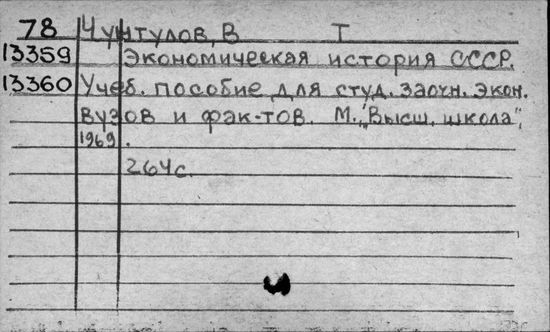 78 Чунтулов, В Т
13359 Экономическая история СССР.
13360 Учеб. пособие для студ. заочн. экон.
вузов и фак-тов. М., "Высш. школа",
1969.
264с.